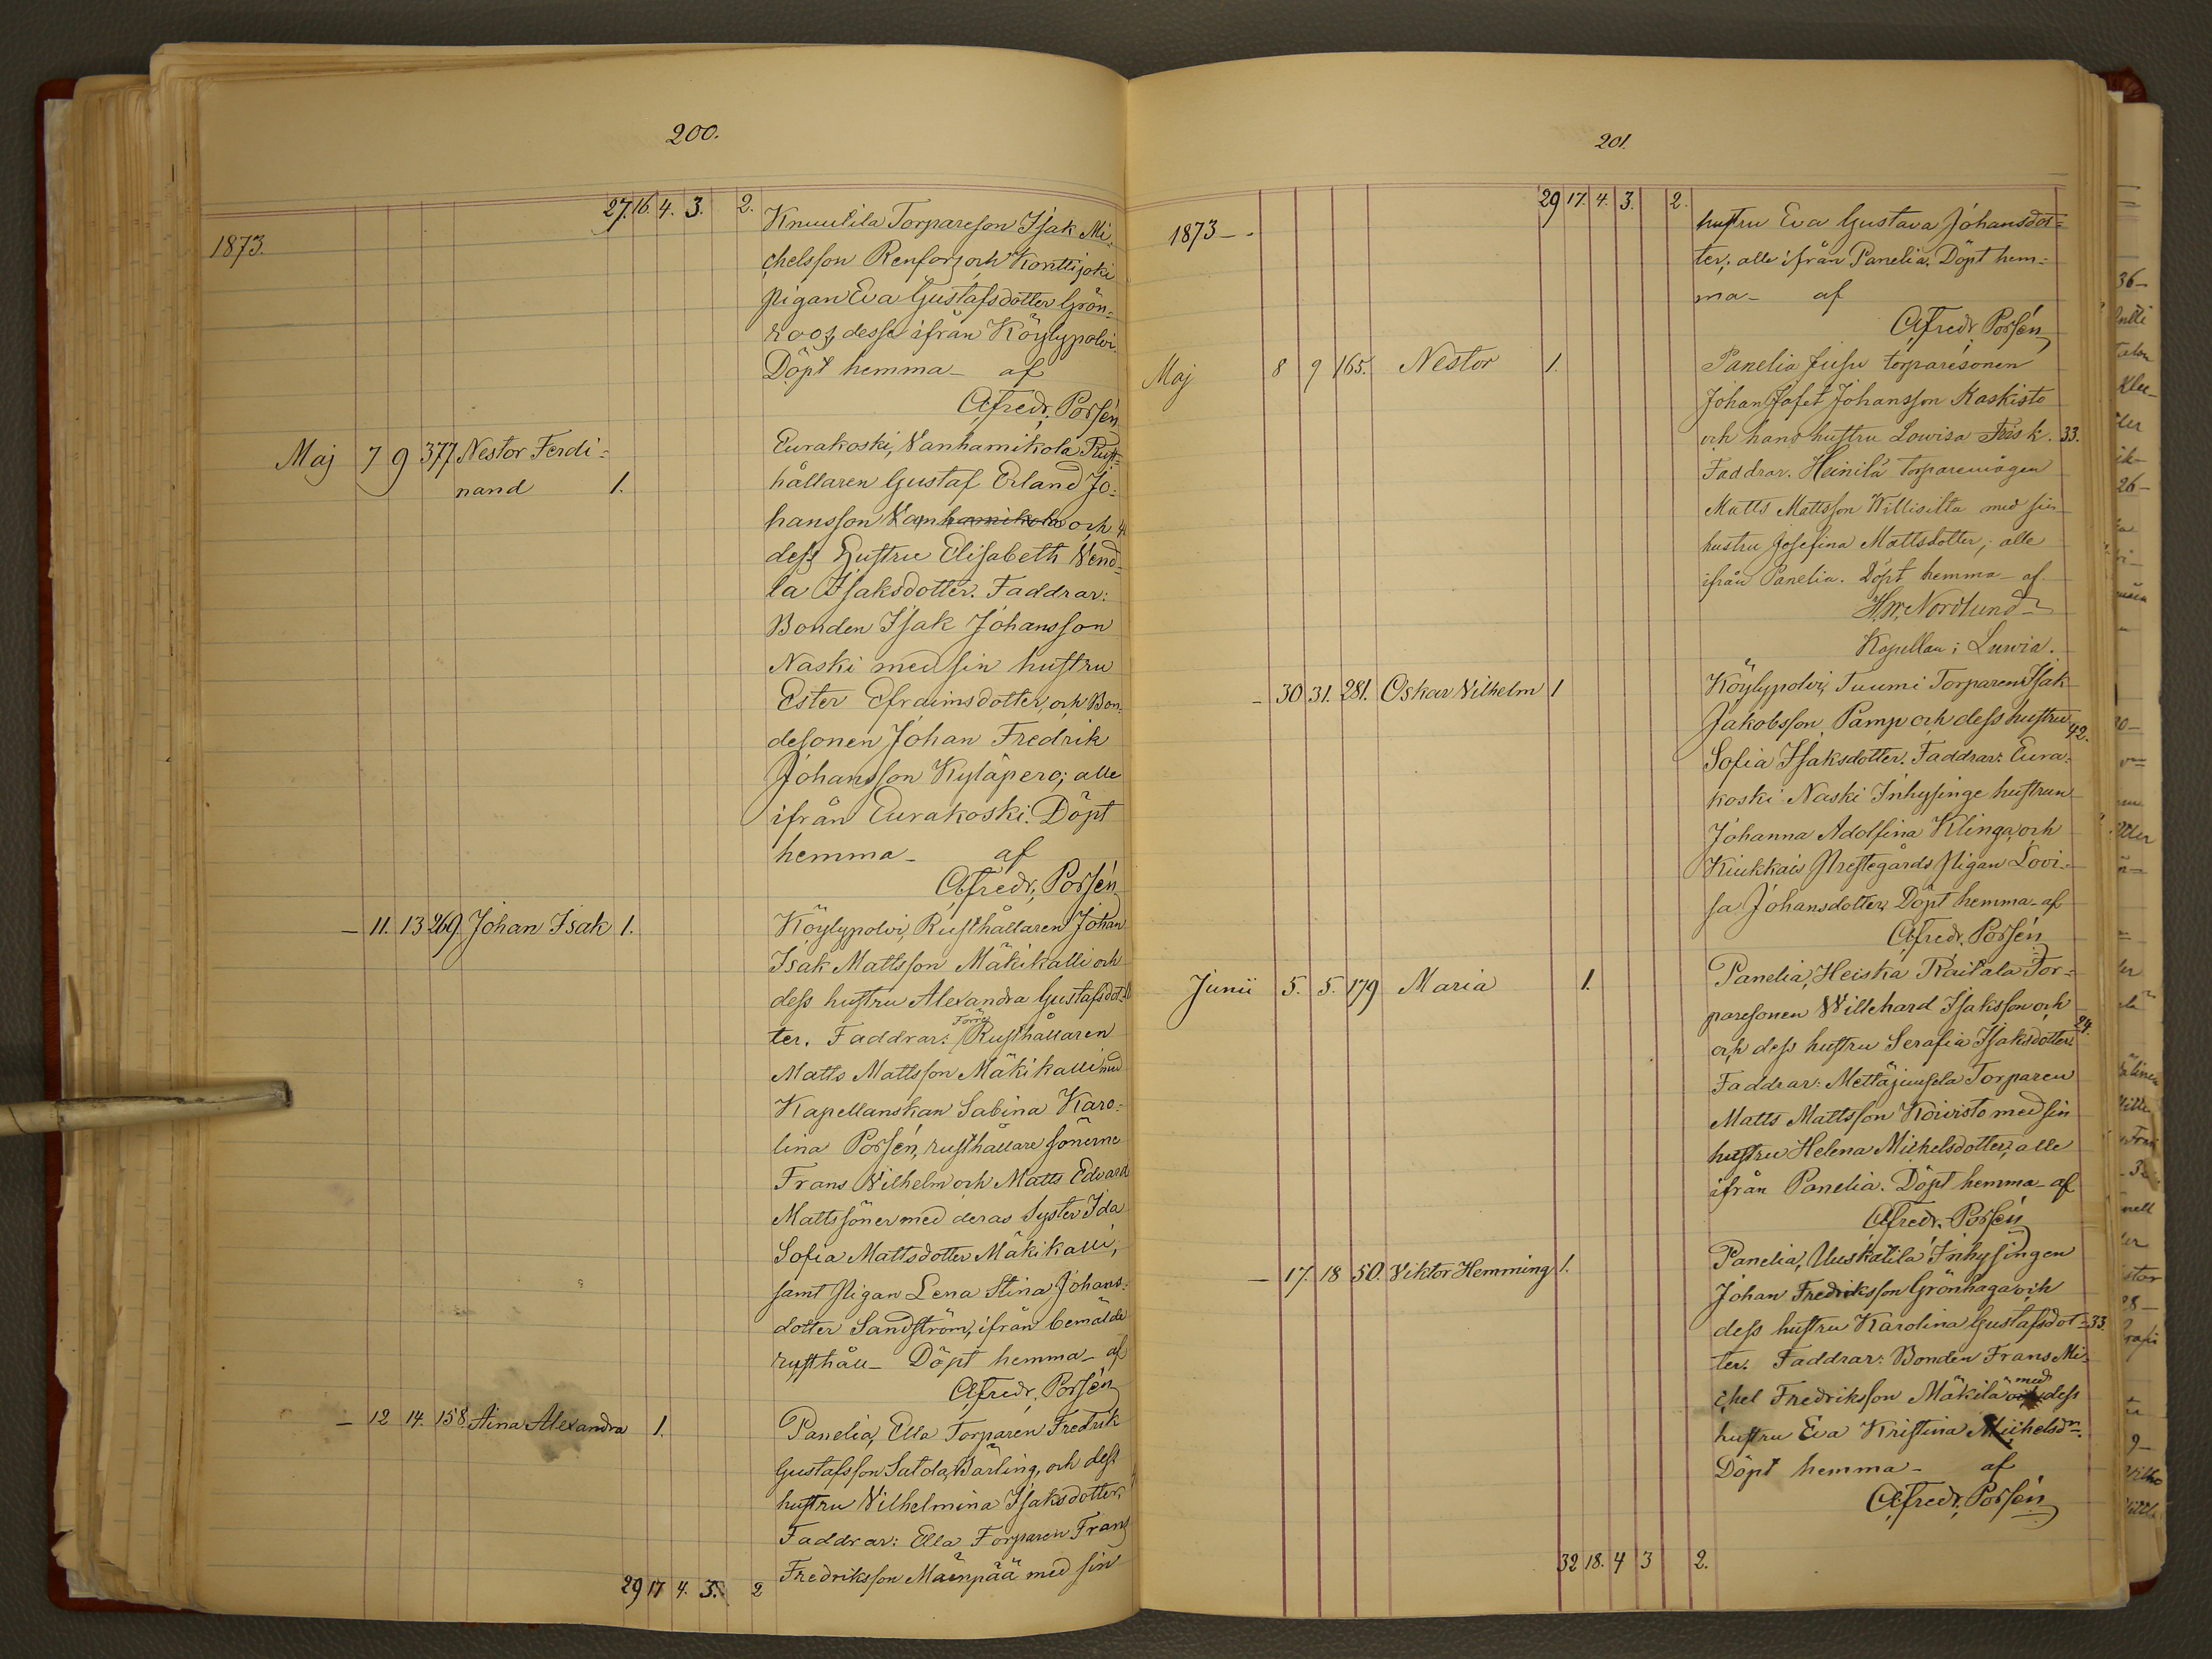 200.
27. 16. 4. 3. 2.
1873.
Knuutila Torpareson Isak Mi-
chelsson Renfors och Konttijoki
pigan Eva Gustafsdotter Grön-
roos, desse ifrån Köylypolvi.
Döpt hemma - af
Alfredr. Porsén
Maj 7 9 377 Nestor Ferdi=
nand 1.
Eurakoski, Vanhamikola Rust-
hållaren Gustaf Erland Jo-
hansson Vanhamikola och
dess Hustru Elisabeth Vend-
la Isaksdotter. Faddrar:
Bonden Isak Johansson
Naski med sin hustru
Ester Efraimsdotter, och Bon-
desonen Johan Fredrik
Johansson Kyläpero; alle
ifrån Eurakoski. Döpt
hemma - af
Alfredr. Porsén
- 11. 13 269. Johan Isak 1.
Köylypolvi, Rusthållaren Johan
Isak Mattsson Mäkikalli och
dess hustru Alexandra Gustafsdot-
ter. Faddrar: Förre Rusthållaren
Matts Mattsson Mäkikalli med
Kapellanskan Sabina Karo-
lina Porsén, rusthållare sönerne
Frans Vilhelm och Matts Edvard
Mattssöner med deras Syster Ida
Sofia Mattsdotter Mäkikalli;
samt Pigan Lena Stina Johans-
dotter Sandström, ifrån bemälde
rusthåll - Döpt hemma - af
Alfredr. Porsén
- 12 14. 158. Aina Alexandra 1.
Panelia, Ella Torparen Fredrik
Gustafsson Satola, Bärling, och dess
hustru Vilhelmina Isaksdotter.
Faddrar: Ella Torparen Frans
Fredriksson Mäenpää med sin
29 17 4. 3. 2
201.
29 17. 4. 3. 2.
1873 -
hustru Eva Gustava Johansdot=
ter; alle ifrån Panelia. Döpt hem=
ma - af
Alfredr. Porsén
Maj 8 9 165. Nestor 1.
Panelia Juju torparesonen
Johan Jafet Johansson Kaskisto
och hans hustru Lowisa Fris k. 33.
Faddrar. Heinilä torparemågen
Matts Mattsson Willisilta med sin
hustru Josefina Mattsdotter; alle
ifrån Panelia. Döpt hemma - af
H.W. Nordlund
Kapellan i Luvia.
- 30 31. 281. Oskar Vilhelm 1
Köylypolvi, Tuumi Torparen Isak
Jakobsson Pamp och dess hustru 42.
Sofia Isaksdotter. Faddrar: Eura-
koski Naski Inhysinge hustrun
Johanna Adolfina Klinga, och
Kiukkais Prestegårds Pigan Lovi-
sa Johansdotter, Döpt hemma - af
Alfredr. Porsén
Junii 5. 5. 179 Maria 1.
Panelia, Heiska Raitala Tor-
paresonen Willehard Isaksson och
och dess hustru Serafia Isaksdotter 24.
Faddrar: Mettäjuusela Torparen
Matts Mattsson Koivisto med sin
hustru Helena Michelsdotter; alle
ifrån Panelia. Döpt hemma - af
Alfredr. Porsén
- 17. 18 50. Viktor Hemming 1.
Panelia, Uuskatila Inhysingen
Johan Fredriksson Grönhaga och
dess hustru Karolina Gustafsdot- 33.
ter. Faddrar: Bonden Frans Mi-
chel Fredriksson Mäkilä med dess
hustru Eva Kristina Michelsdr.
Döpt hemma - af
Alfredr. Porsén
32 18. 4 3 2.